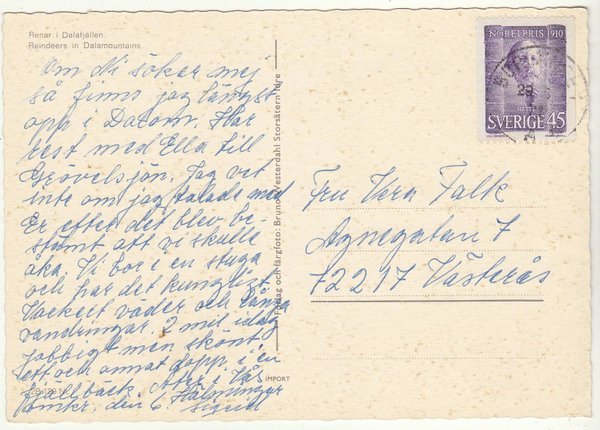 Renar i Dalafjällen.
Reindeers in Dalamountains
Om Ni söker mej
så finns jag längst
opp i Dalom. Har
rest med Ella till
Grövelsjön. Jag vet
inte om jag talade med
Er efter det blev be-
stämt att vi skulle
åka. Vi bor i en stuga
och har det kungligt.
Vackert väder och långa
vandringar. 2 mil idag
jobbigt men skönt
ett och annat dopp i en
fjällbäck. Åter i Vås
omkr. den 6. Hälsningar
Sigrid
Förlag och färgfoto: Bruno Vesterdahl Storsätern Idre
IMPORT
NOBELPRIS 1910
HEYSE
SVERIGE 45
Fru Vera Falk
Agnegatan 7
72217 Västerås